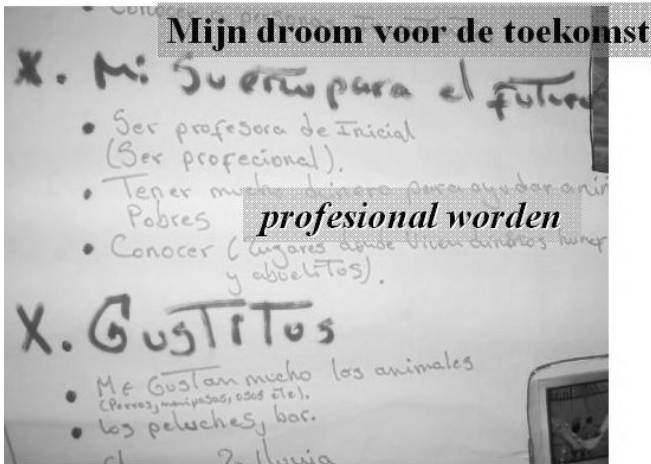 Conocer a
Mijn droom voor de toekomst
X. Mi Sueño para el Futuro
• Ser profesora de Inicial
(Ser profecional).
• Tener mucho dinero para ayudar a niñ
Pobres
profesional worden
• Conocer (lugares donde viven
y abuelitos).
X. GusTiTos
• Me GusTan mucho los animales
(Perros, mariposas, osos eTc).
• los peluches, bar.
lluvia